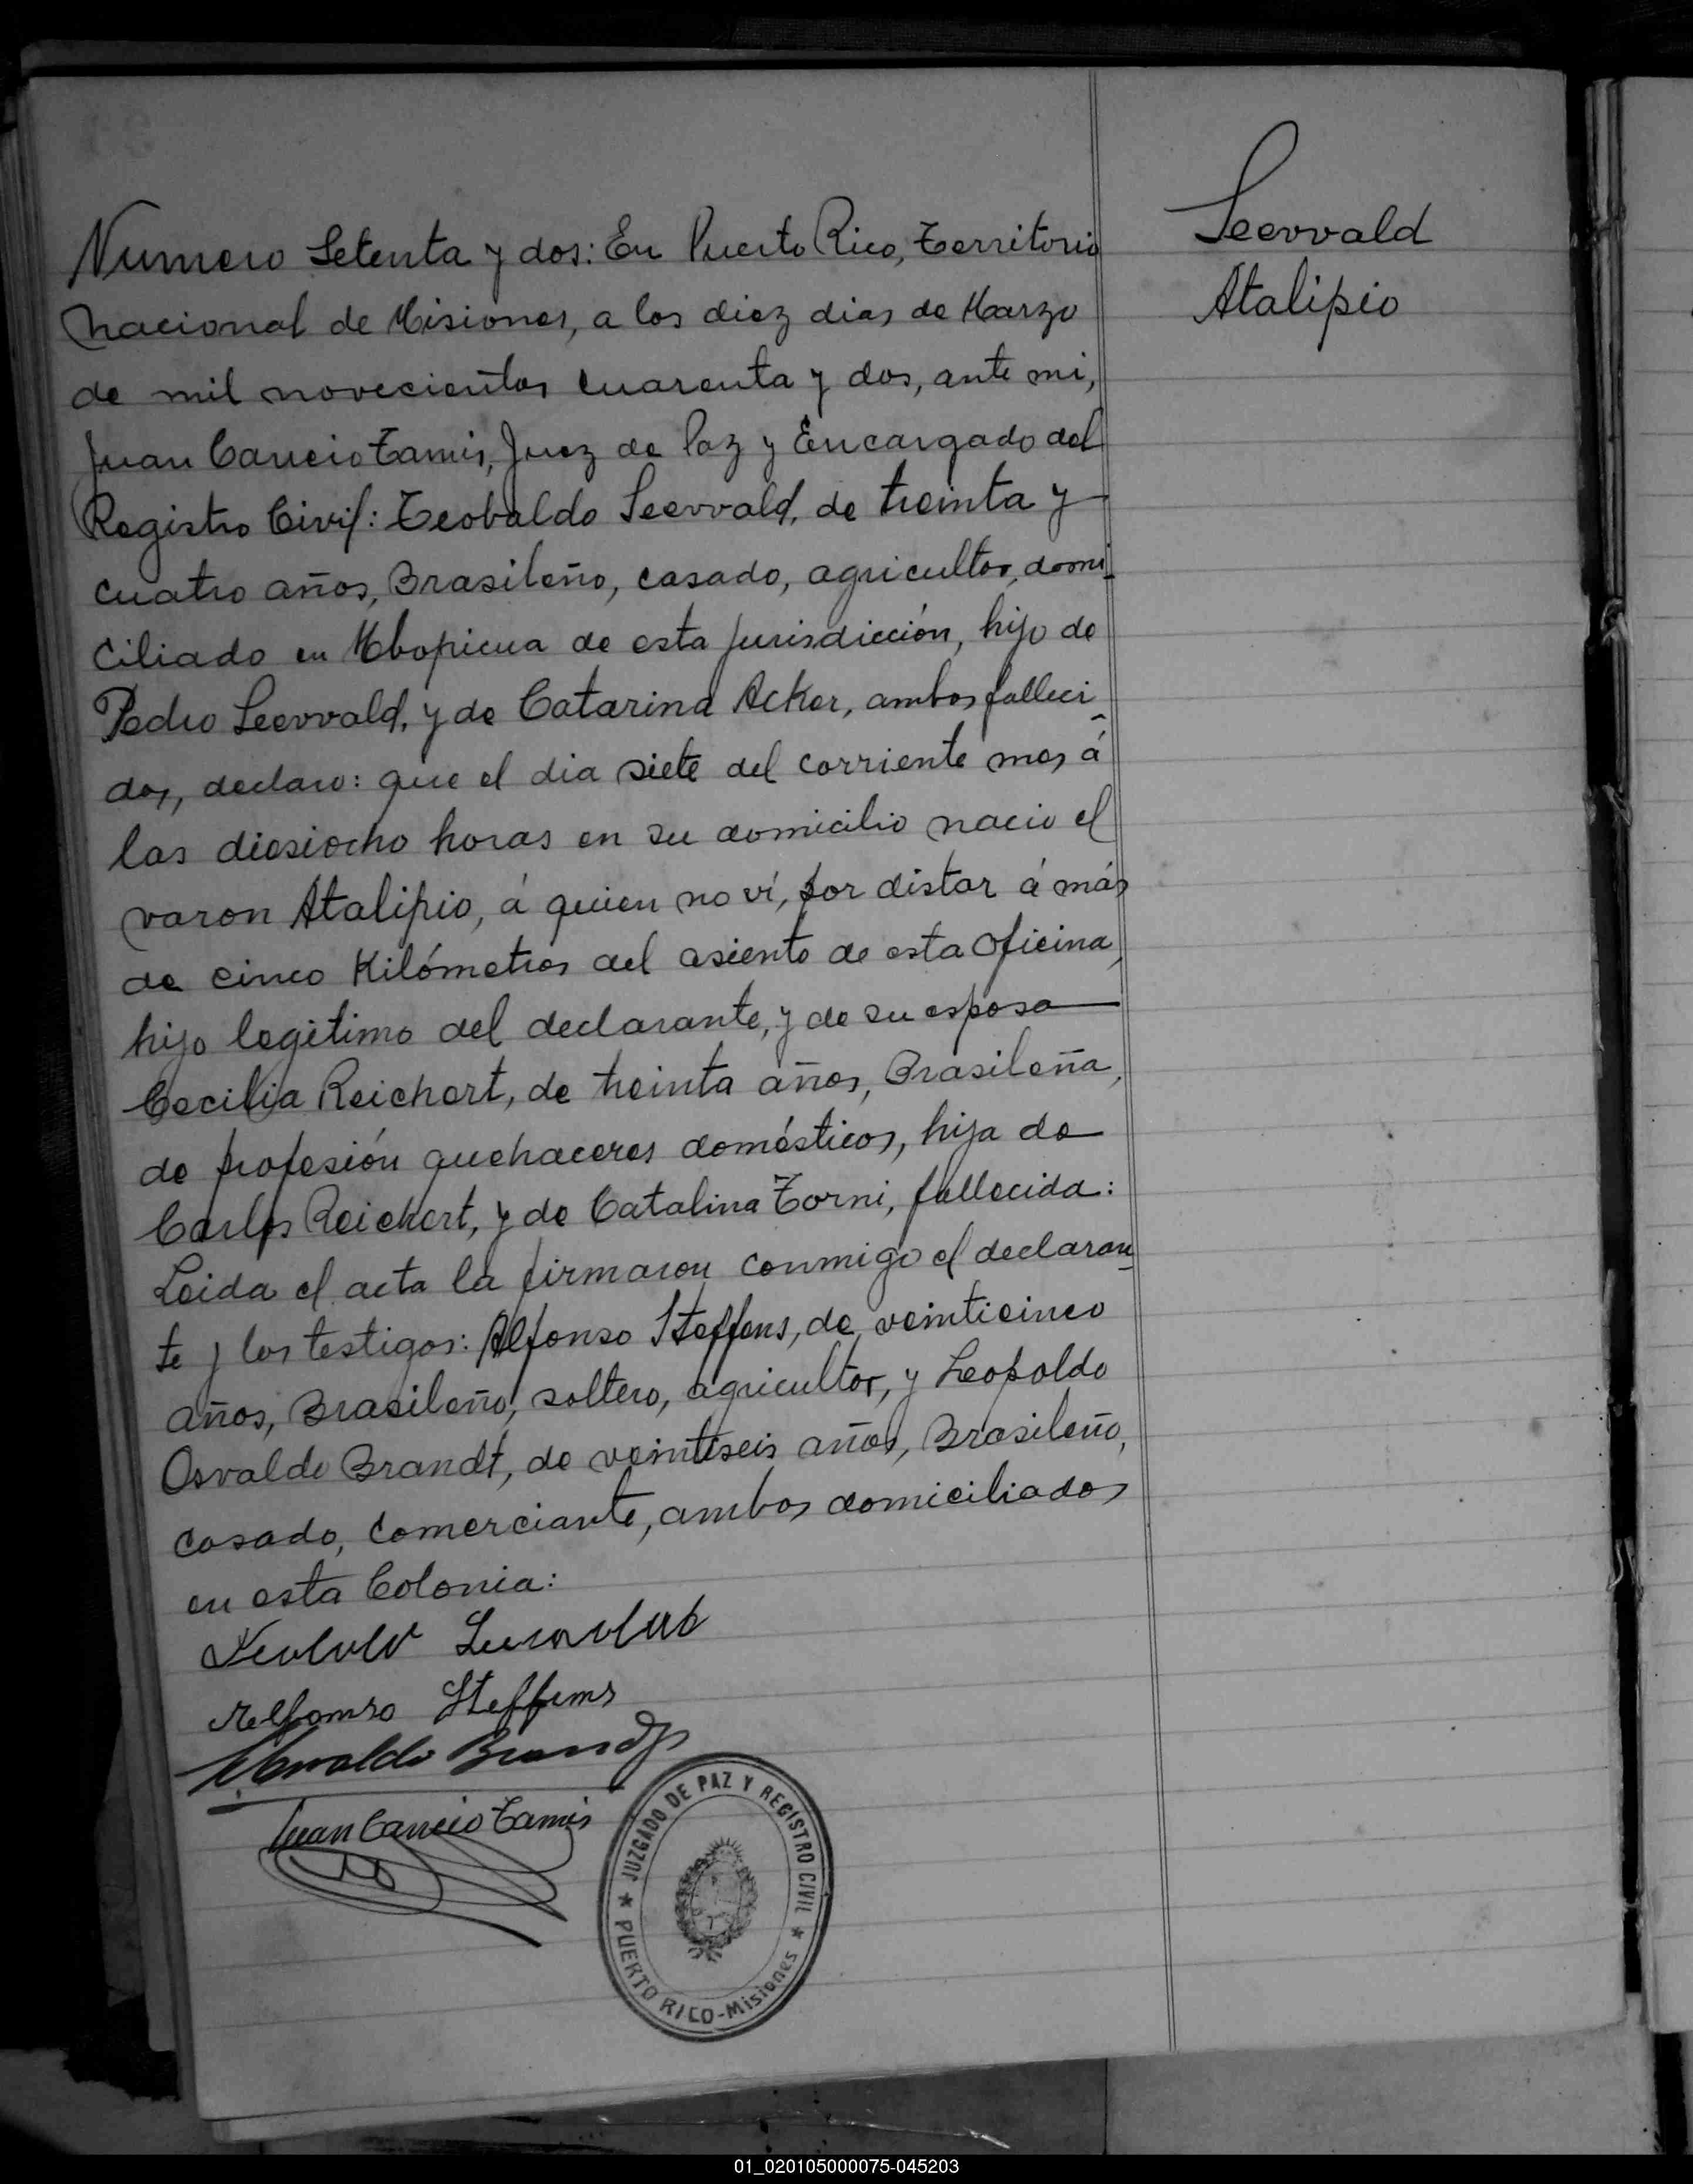 Seewald
Atalipio
Numero Setenta y dos: En Puerto Rico, Territorio
Nacional de Misiones, a los diez dias de Marzo
de mil novecientos cuarenta y dos, ante mi,
Juan Cancio Tamis, Juez de Paz y Encargado del
Registro Civil: Teobaldo Seewald, de treinta y
cuatro años, Brasileño, casado, agricultor, domi-
ciliado en Mbopicua de esta jurisdicción, hijo de
Pedro Seewald, y de Catarina Acker, ambos falleci-
dos, declaro: que el dia siete del corriente mes á
las diesiocho horas en su domicilio nacio el
varon Atalipio, á quien no ví, por distar á más
de cinco Kilómetros del asiento de esta Oficina,
hijo legitimo del declarante, y de su esposa
Cecilia Reichert, de treinta años, Brasileña,
de profesión quehaceres domésticos, hija de
Carlos Reichert, y de Catalina Torni, fallecida:
Leida el acta la firmaron conmigo el declaran-
te y los testigos: Alfonso Steffens, de veinticinco
años, Brasileño, soltero, agricultor, y Leopoldo
Osvaldo Brandt, de veintiseis años, Brasileño,
casado, comerciante, ambos domiciliados
en esta Colonia:
Alfonso Steffens
Osvaldo Brandt
Juan Cancio Tamis
JUZGADO DE PAZ Y REGISTRO CIVIL
PUERTO RICO-Misiones
01_020105000075-045203